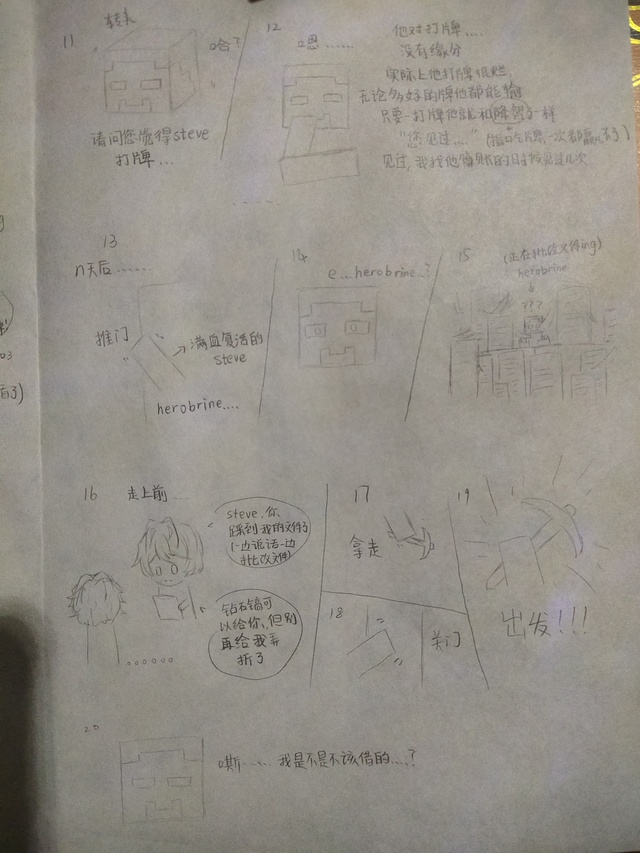 11
转头
哈？
请问您觉得steve
打牌...
12
嗯......
他对打牌....
没有缘分
实际上他打牌很烂,
无论多好的牌他都能输
只要一打牌他就和
一样
"您见过...."
见过,我找他
的时候见过几次
13
n天后......
推门
→满血复活的
steve
herobrine....
14
e...herobrine...?
15
(正在批改文件ing)
herobrine
↓
???
16
走上前...
steve.你
踩到我的文件了
(一边说话一边
批改文件)
钻石镐可
以给你,但别
再给我弄
折了
......
17
拿走
18
关门
19
出发!!!
20
嘶......我是不是不该借的....?